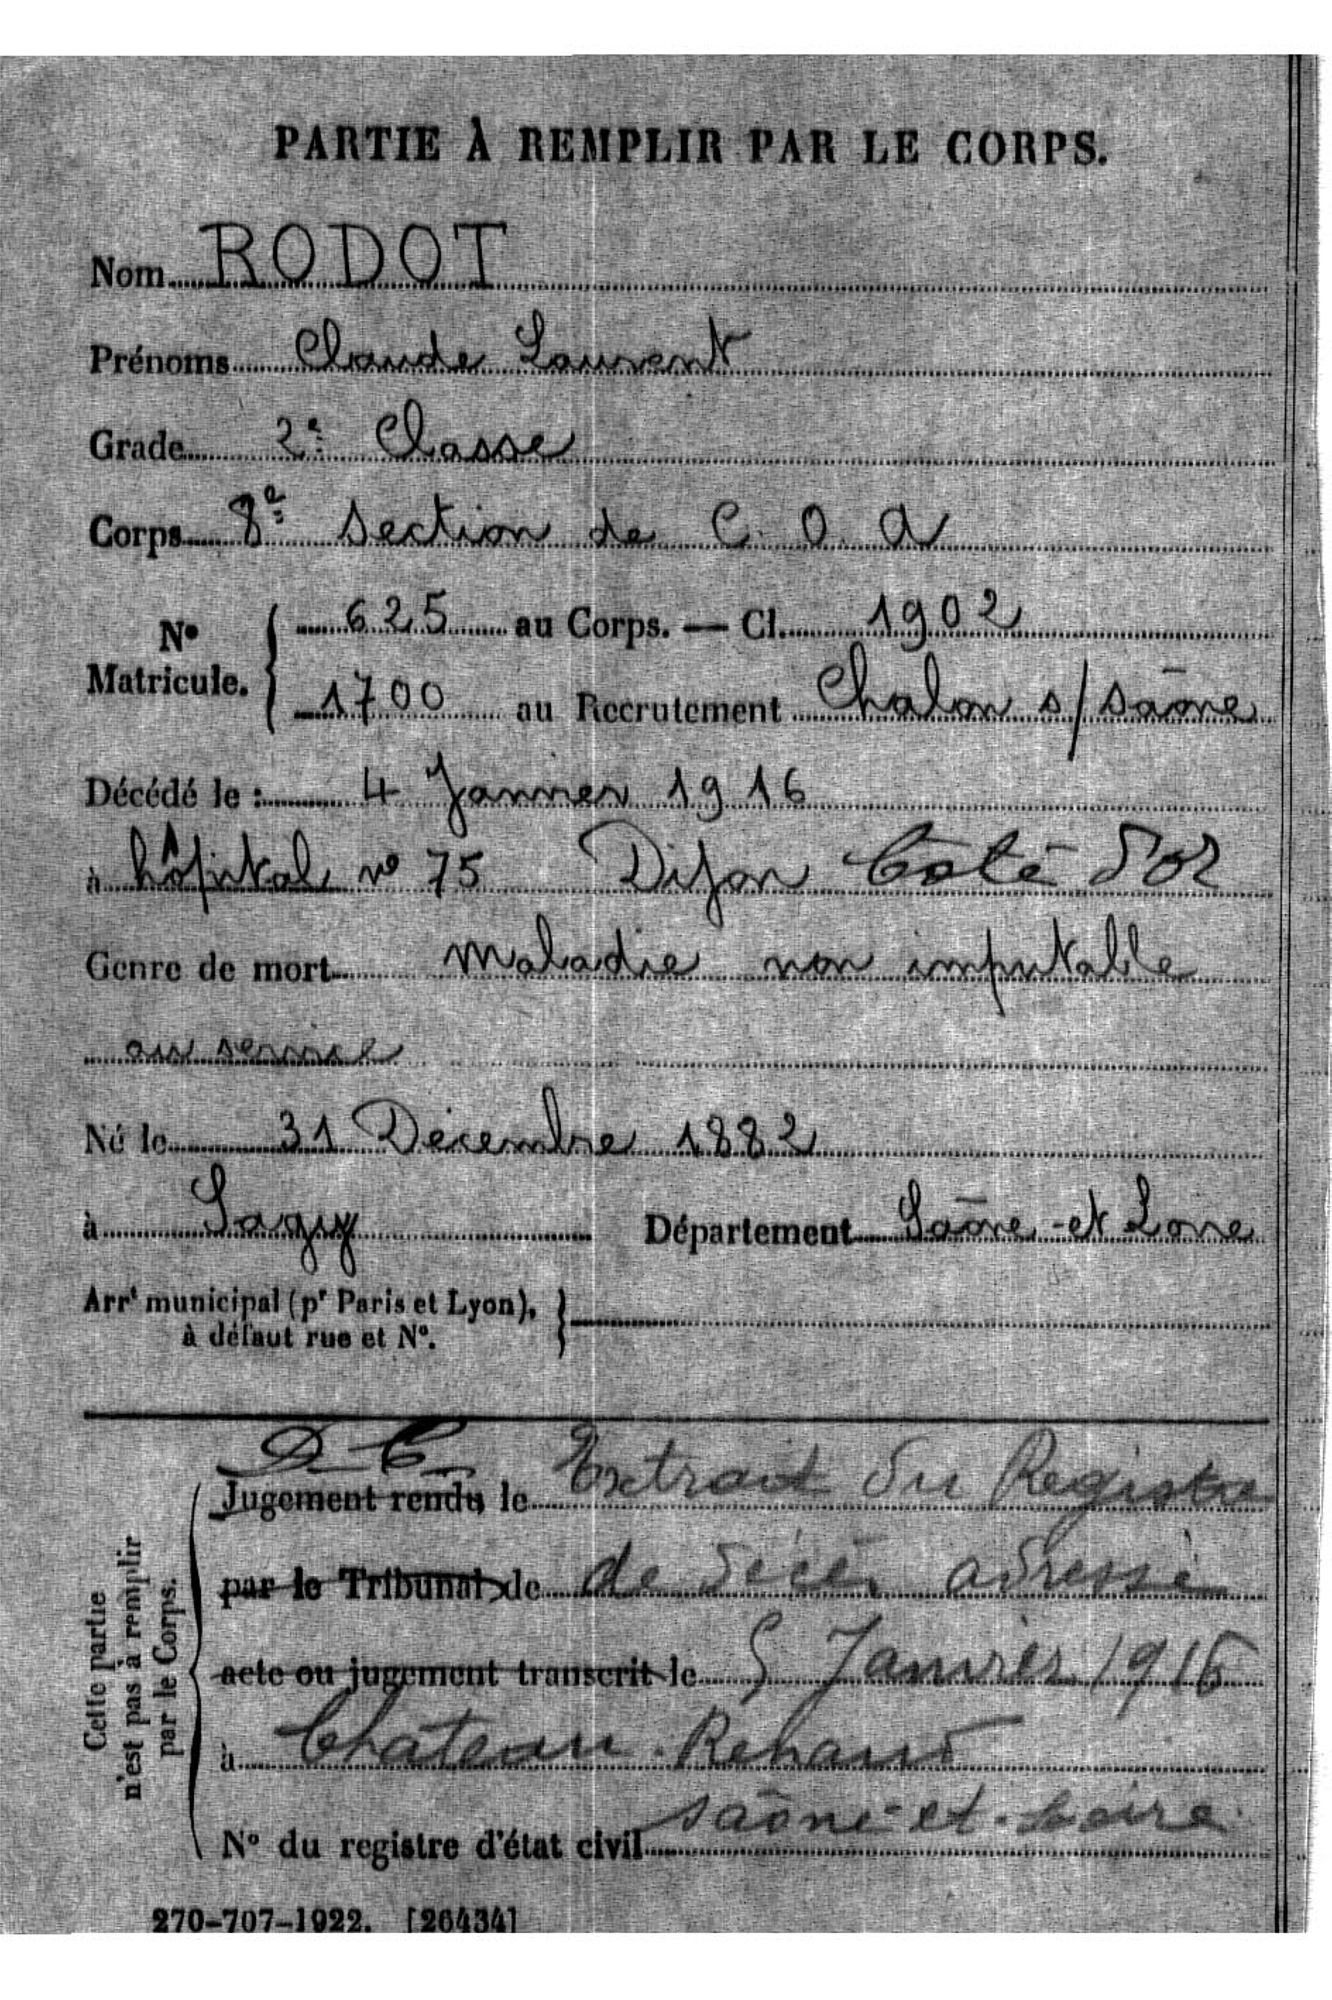 PARTIE À REMPLIR PAR LE CORPS.
Nom RODOT
Prénoms Claude Laurent
Grade 2e Classe
Corps 8e Section de C. O. A
No Matricule. 625 au Corps. — Cl. 1902
1700 au Recrutement Chalon s/ Saône
Décédé le : 4 Janvier 1916
à hôpital no 75 Dijon Côte d'or
Genre de mort maladie non imputable
au service
Né le 31 Décembre 1882
à Sagy Département Saône-et Loire
Arrt municipal (pr Paris et Lyon),
à défaut rue et No.
Cette partie
n'est pas à remplir
par le Corps.
D. C.
Jugement rendu le Extrait du Registre
par le Tribunal de de décès adressé
acte ou jugement transcrit le 5 Janvier 1916
à Chateau-Renaud
Saône-et-Loire
No du registre d'état civil
270-707-1922. [26434]